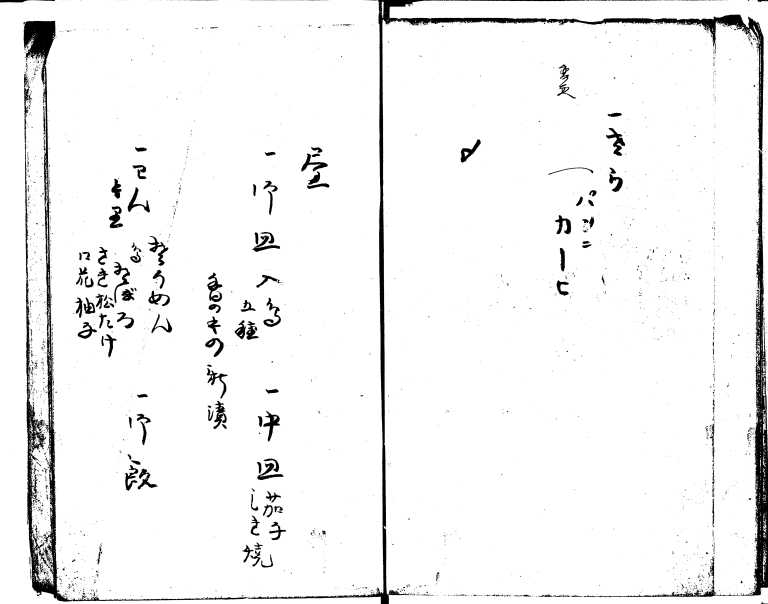 一さら
パン
カーヒ
昼
一御皿
入鳥
五種
香のもの
新漬
一中皿
茄子
しき焼
一わん
そうめん
鳥そぼろ
さき松たけ
口花柚子
一御飯